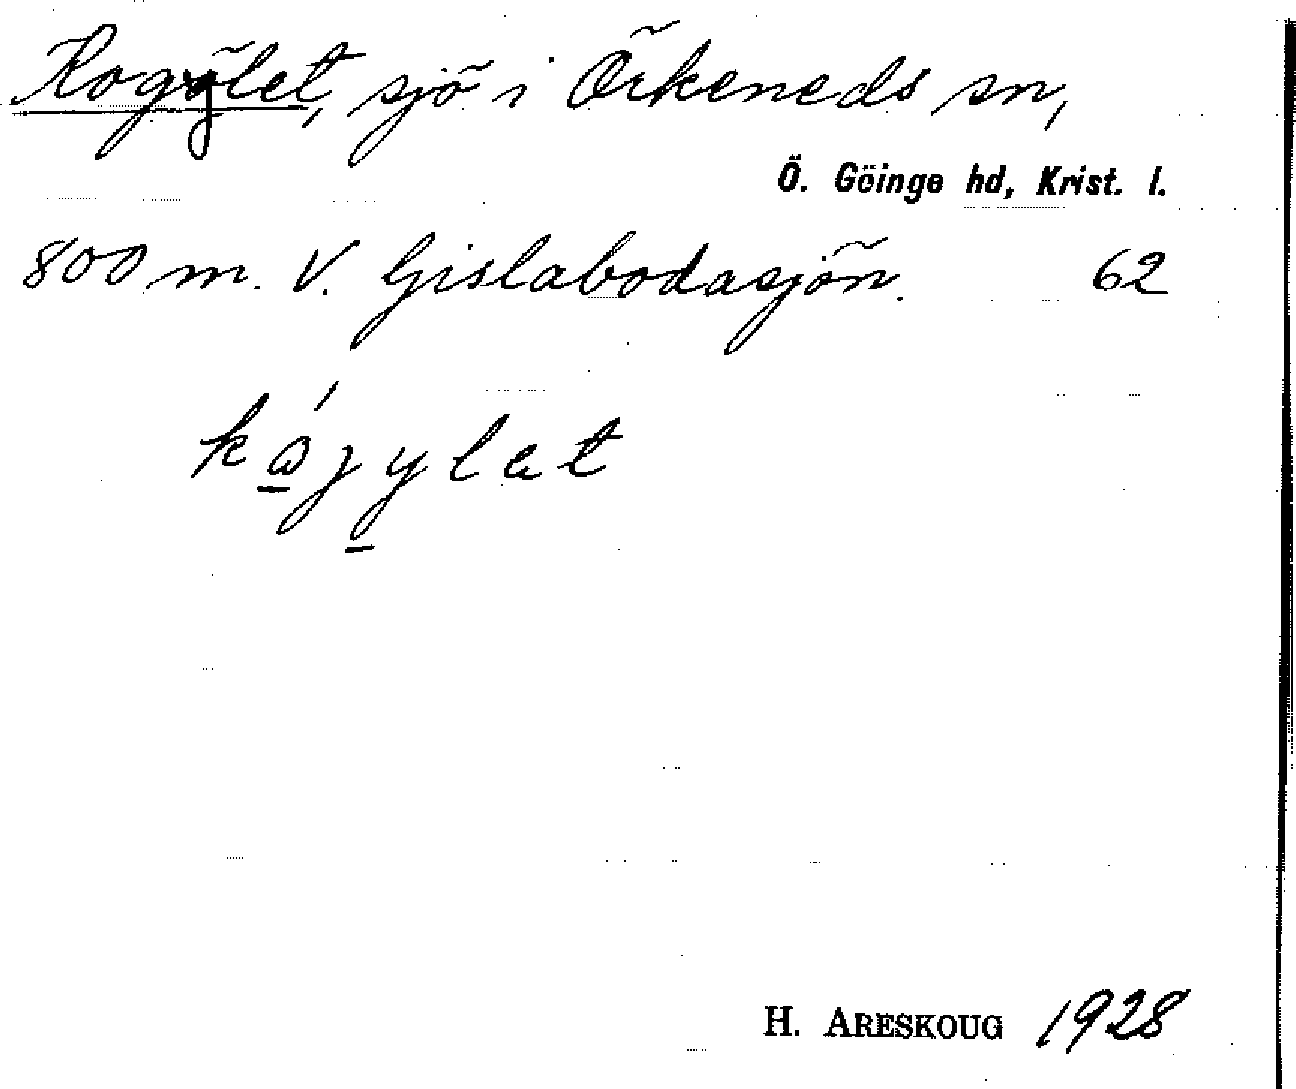 Kogylet, sjö i Örkeneds sn,
Ö. Göinge hd, Krist. l.
800 m. V. Gislabodasjön. 62
kågylet
H. ARESKOUG 1928